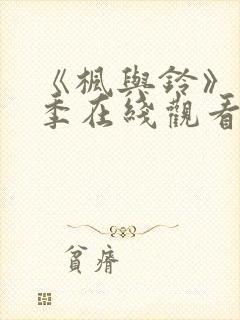 《楓與鈴》
季在綫觀看
貧瘠